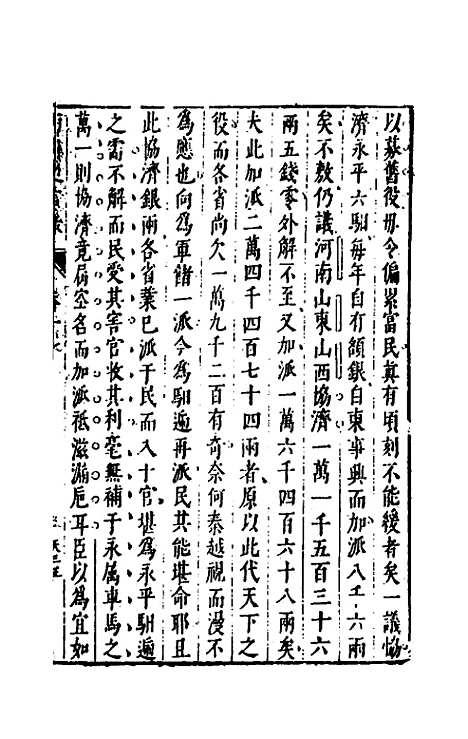 以蘇舊役毋令偏累富民真有頃刻不能緩者矣一議恊
濟永平六馹每年自有額銀自東事興而加派八千六兩
矣不敷仍議河南山東山西協濟一萬一千五百三十六
兩五錢零外解不至又加派一萬六千四百六十八兩矣
夫此加派二萬四千四百七十四兩者原以此代天下之
役而各省尚欠一萬九千二百有奇奈何秦越視而漫不
為應也向為軍儲一派今為馹遞再派民其能堪命耶且
此協濟銀兩各省業已派于民而入于官堪為永平馹遞
之需不解而民受其害官收其利毫無補于永属車馬之
萬一則協濟竟屬空名而加派祗滋漏巵耳臣以為宜如